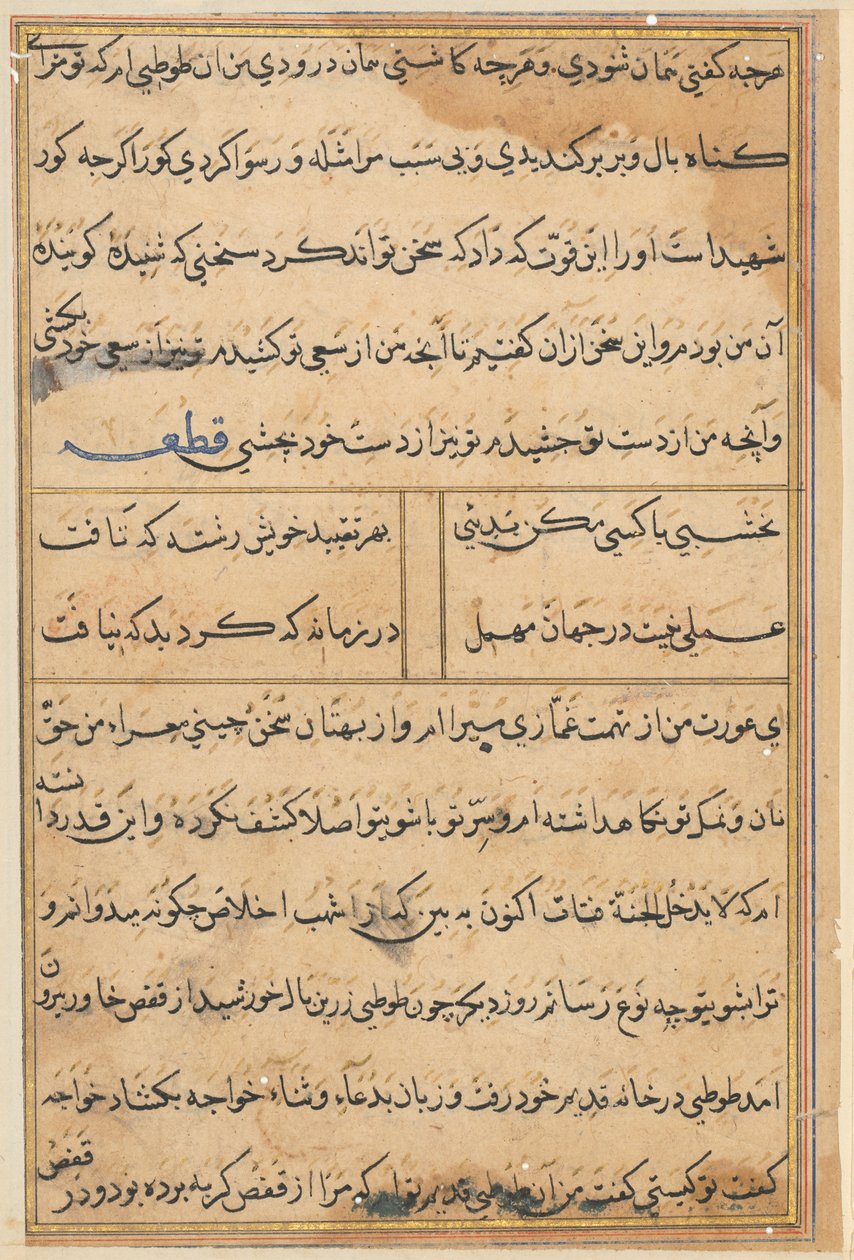 هرچه کفتي همان شنودي وهرچه کاشتي همان درودي من ان طوطيي ام که تو مرا بے
کناه بال وپر برکنديدي وبي سبب مرا مثله ورسوا کردي کور اکرچه کور
شهيداست اورا اين قوّت که داد که سخن تواند کرد سخني که شنيدهٔ کويندهٔ
آن من بودم واين سخن ازان کفتيم تا آنچه من از سعي تو کشيدم تو نيز از سعي خود بکشي
وآنچه من از دست تو چشيدم تو نيز از دست خود بچشي قطعه
نخشبي باکسي مکن بديئي
بهر تقييد خويش رشته که تافت
عملي نيت در جهان مهمل
در زمانه که کرد بد که نيافت
اي عورت من از تهمت غمّازي مبرا ام واز بهتان سخن چيني معراء من حقّ
نان ونمک تو نکاهداشته ام وسِرّ تو باشويتو اصلا کشف نکرده واين قدر دانسته
ام که لا يدخل الجنة قتات اکنون به بين که از اشهب اخلاص چکونه ميدوانم و
ترا بشويتو چه نوع رسانم روز ديکر چون طوطيي زرين بال خورشيد از قفص خاور بيرون
امد طوطيي در خانه قديم خود رفت وزبان بدعاء وثناء خواجه بکشاد خواجه
کفت تو کيستي کفت من آن طوطيي قديم تو ام که مرا از قفص کربه برده بود ودر قفص